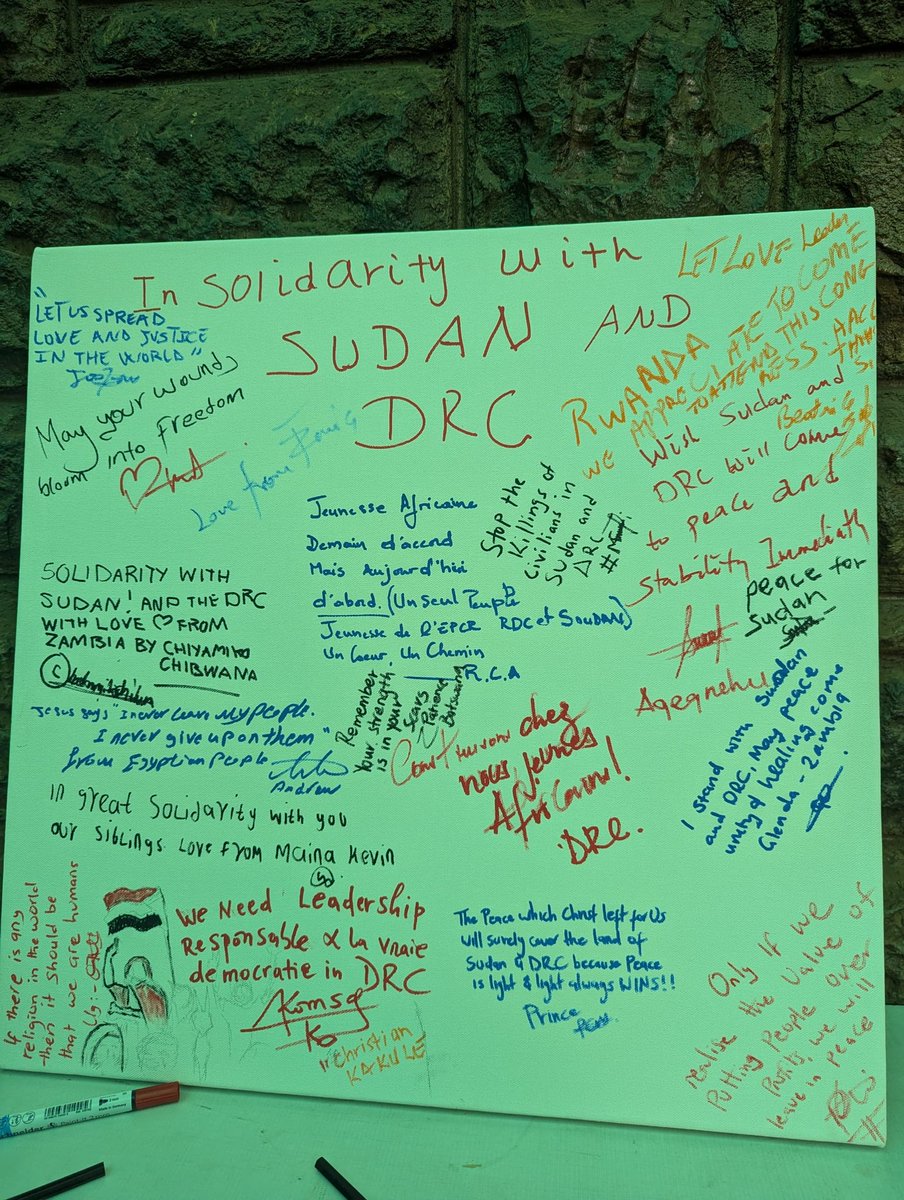 In Solidarity with
SUDAN AND
DRC
"
LET US SPREAD
LOVE AND JUSTICE
IN THE WORLD"
May your wounds
bloom into freedom
Love from
LET LOVE Leader
RWANDA
WE APPRECIATE TO COME
TO ATTEND THIS CONG
RESS. AACC
Wish Sudan and
DRC will come
to peace and
stability Immediatly
Stop the
Killings of
Civilians in
Sudan and
DRC
Jeunesse Africaine
Demain d'accord
Mais Aujourd'hui
d'abord. (Un seul Peuple
Jeunesse de l'EPCR RDC et SOUDAN)
Un Coeur, Un Chemin
R.C.A
peace for
Sudan
SOLIDARITY WITH
SUDAN! AND THE DRC
WITH LOVE ♡ FROM
ZAMBIA BY CHIYAMIKO
CHIBWANA
Remember
Your strength
is in your
scars
Patience
Botswana
Ageqnehu
Jesus says "I never leave My people.
I never give up on them"
from Egyptian People
Andrew
chez
nous, jeunes
Africains!
DRC.
I stand with Sudan
and DRC, May peace
unity & healing come
Glenda - Zambia
in great Solidarity with you
our siblings Love from Maina Kevin
If there is any
religion in the world
then it should be
that we are humans
Ug:-
We Need Leadership
Responsable & la vraie
democratie in DRC
"Christian
KAKULE
The Peace which Christ left for Us
will surely cover the land of
Sudan & DRC because Peace
is light & light always WINS!!
Prince
Only if we
realise the value of
Putting People over
Profits, we will
leave in peace